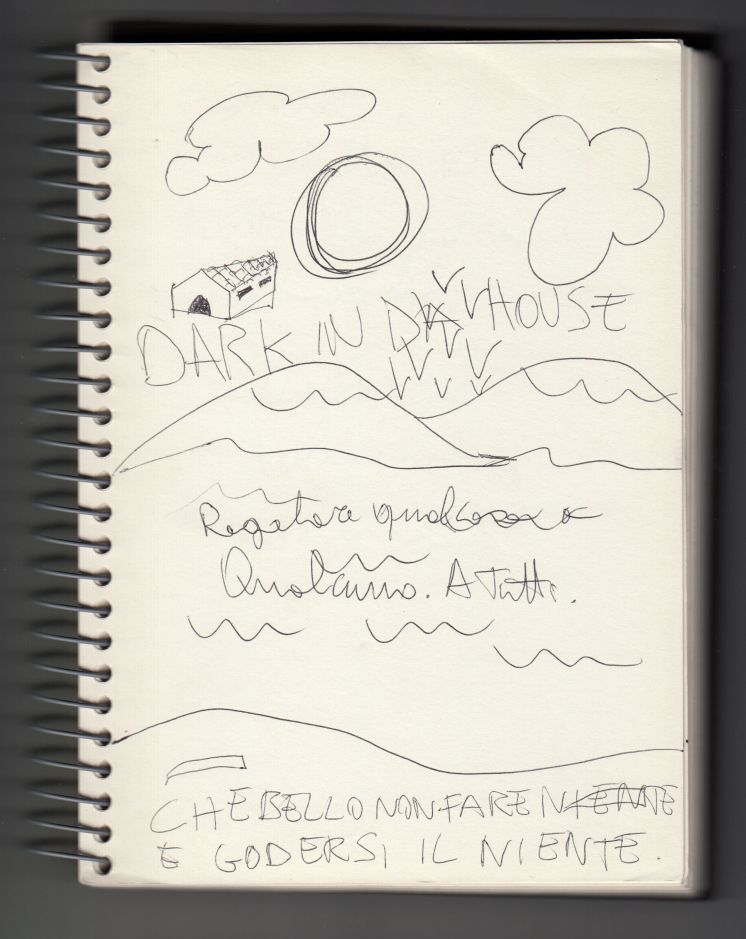 DARK IN DA HOUSE
Regalare qualcosa a
Qualcuno. A Tutti.
CHE BELLO NON FARE NIENTE
E GODERSI IL NIENTE.